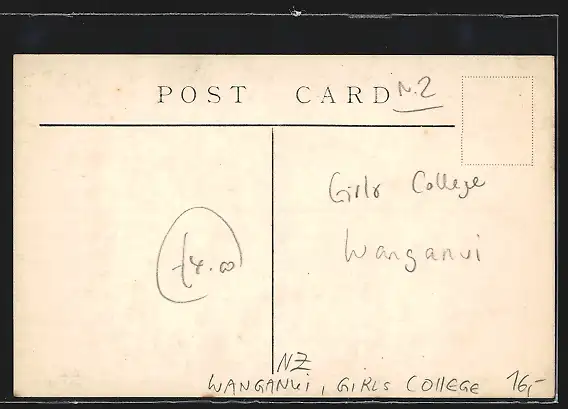 POST CARD N.Z
Girls College
Wanganui
£4.00
NZ
WANGANUI, GIRLS COLLEGE 16,-